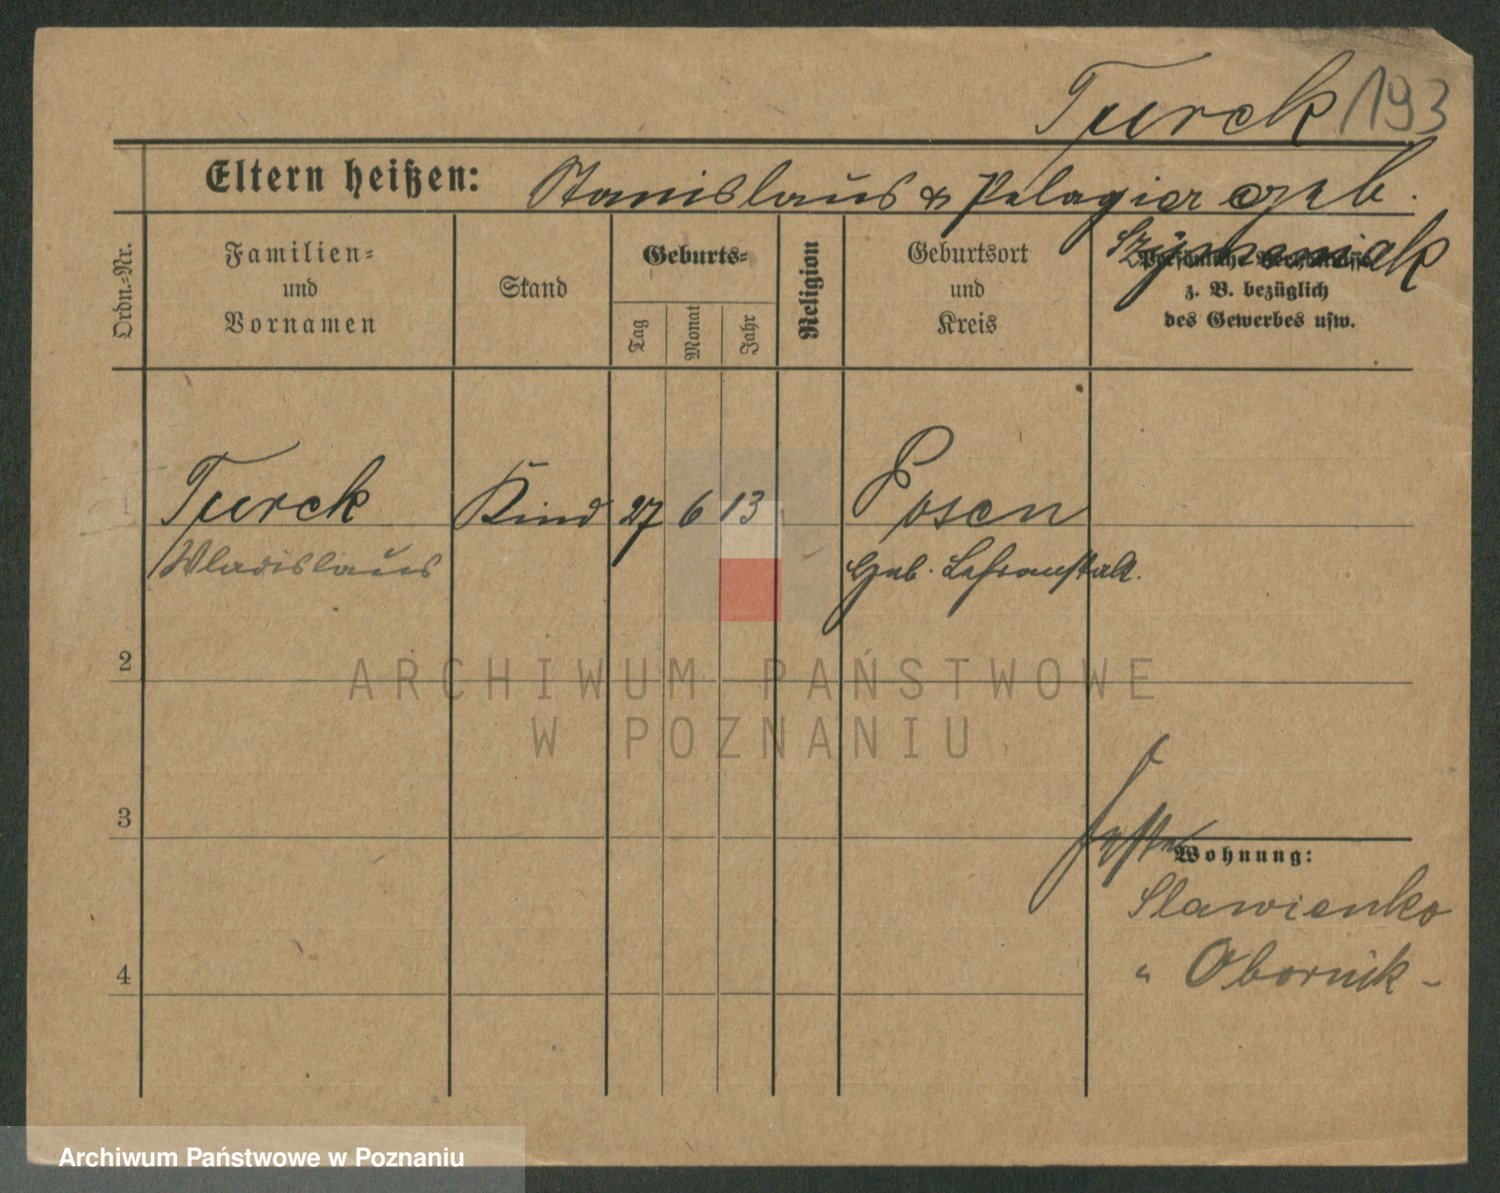 Turck 193
Eltern heißen: Stanislaus & Pelagia geb.
Szymaniak
Ordn.-Nr.
Familien-
und
Vornamen
Stand
Geburts-
Tag
Monat
Jahr
Religion
Geburtsort
und
Kreis
Persönliche Verhältnisse
z. B. bezüglich
des Gewerbes usw.
Turck Kind 27 6 13 Posen
Wladislaus Geb. Lehranstalt.
2
3
4
Wohnung:
Slawienko
" Obornik -
ARCHIWUM PAŃSTWOWE
W POZNANIU
Archiwum Państwowe w Poznaniu